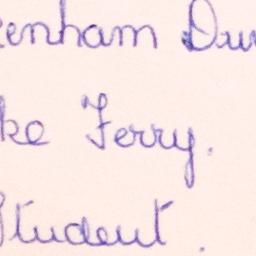 enham Du
ke Ferry.
Student.